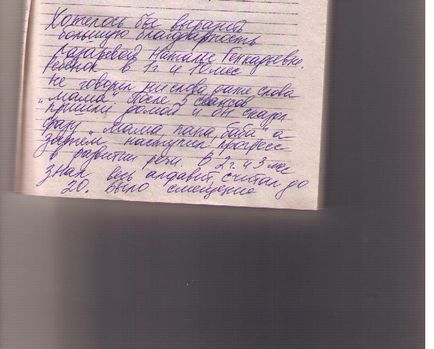 Хотелось бы выразить
большую благодарность
Лазаревой Наталье Геннадьевне.
Ребенок в 1г и 10 мес
не говорил ни слова, даже слова
"мама". После 5 сеансов
пришли домой и он сразу
фразу "Мама, папа, баба" а
затем наступил прогресс
в развитии речи. В 2г и 3 мес
знал весь алфавит, считал до
20. Было смещение